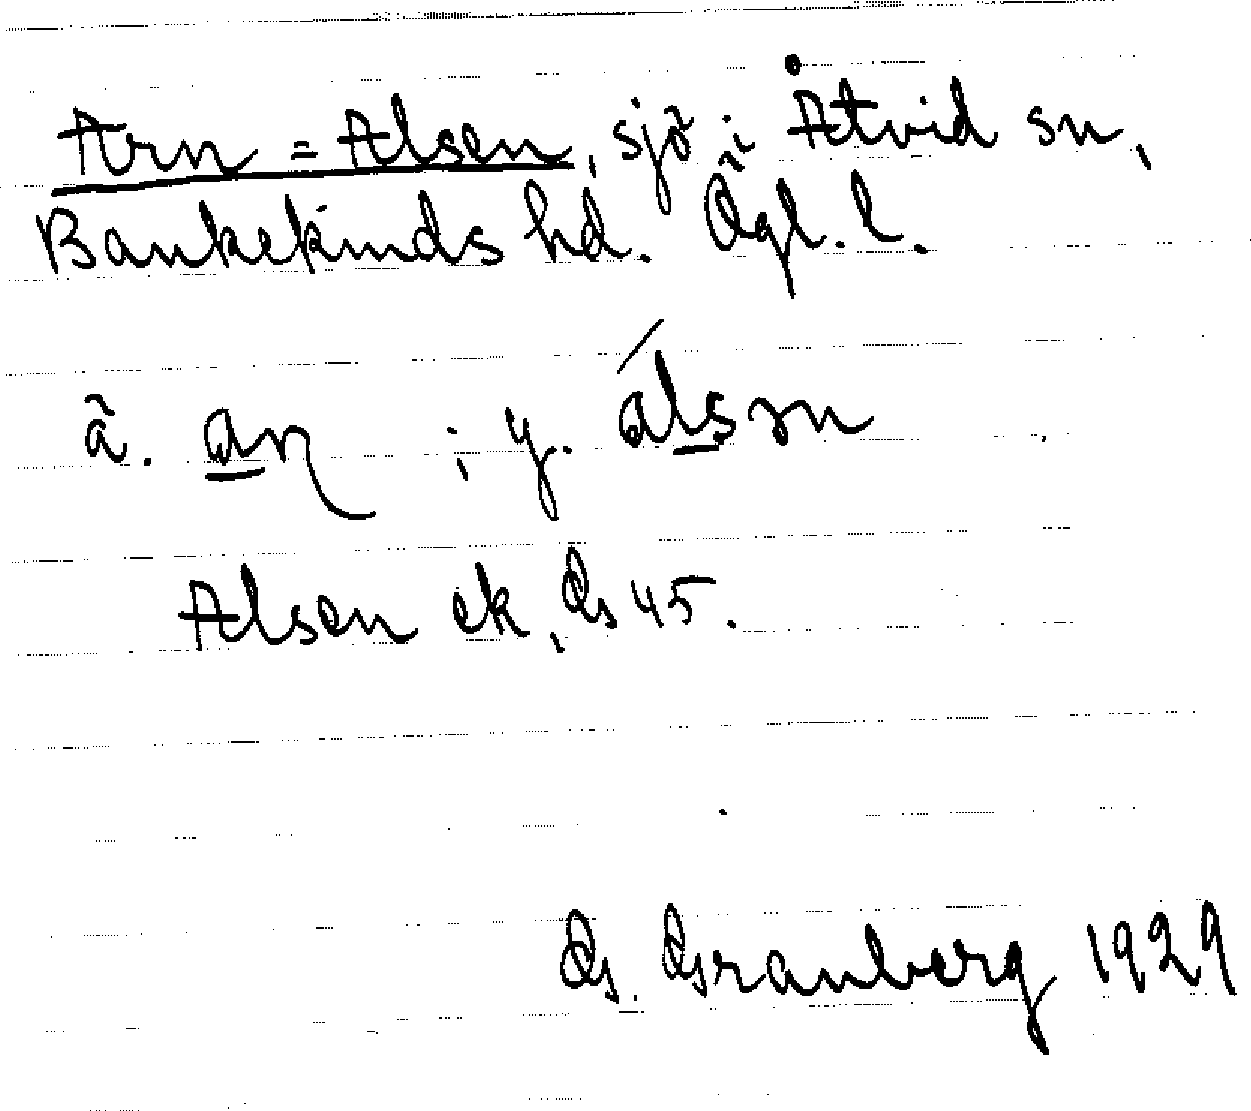 Arn = Alsen, sjö i Åtvid sn,
Bankekinds hd. Ögl. l.
ä. aɳ ; y. álsɱ
Alsen ek, G 45.
G. Granberg 1929